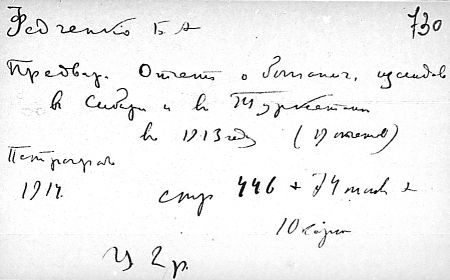 Федченко Б А 730
Предвар. Отчет о ботанич. исследов
в Сибири и в Туркестан
в 1913 году (
Петроград
1914. стр 446 +
10 карт
Ц 2 р.